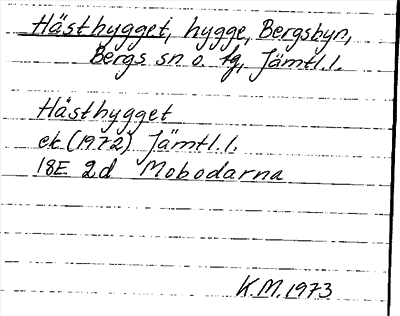 Hästhygget, hygge, Bergsbyn,
Bergs sn o. tg, Jämtl. l.
Hästhygget
ek (1972) Jämtl. l.
18E 2d Mobodarna
K.M. 1973